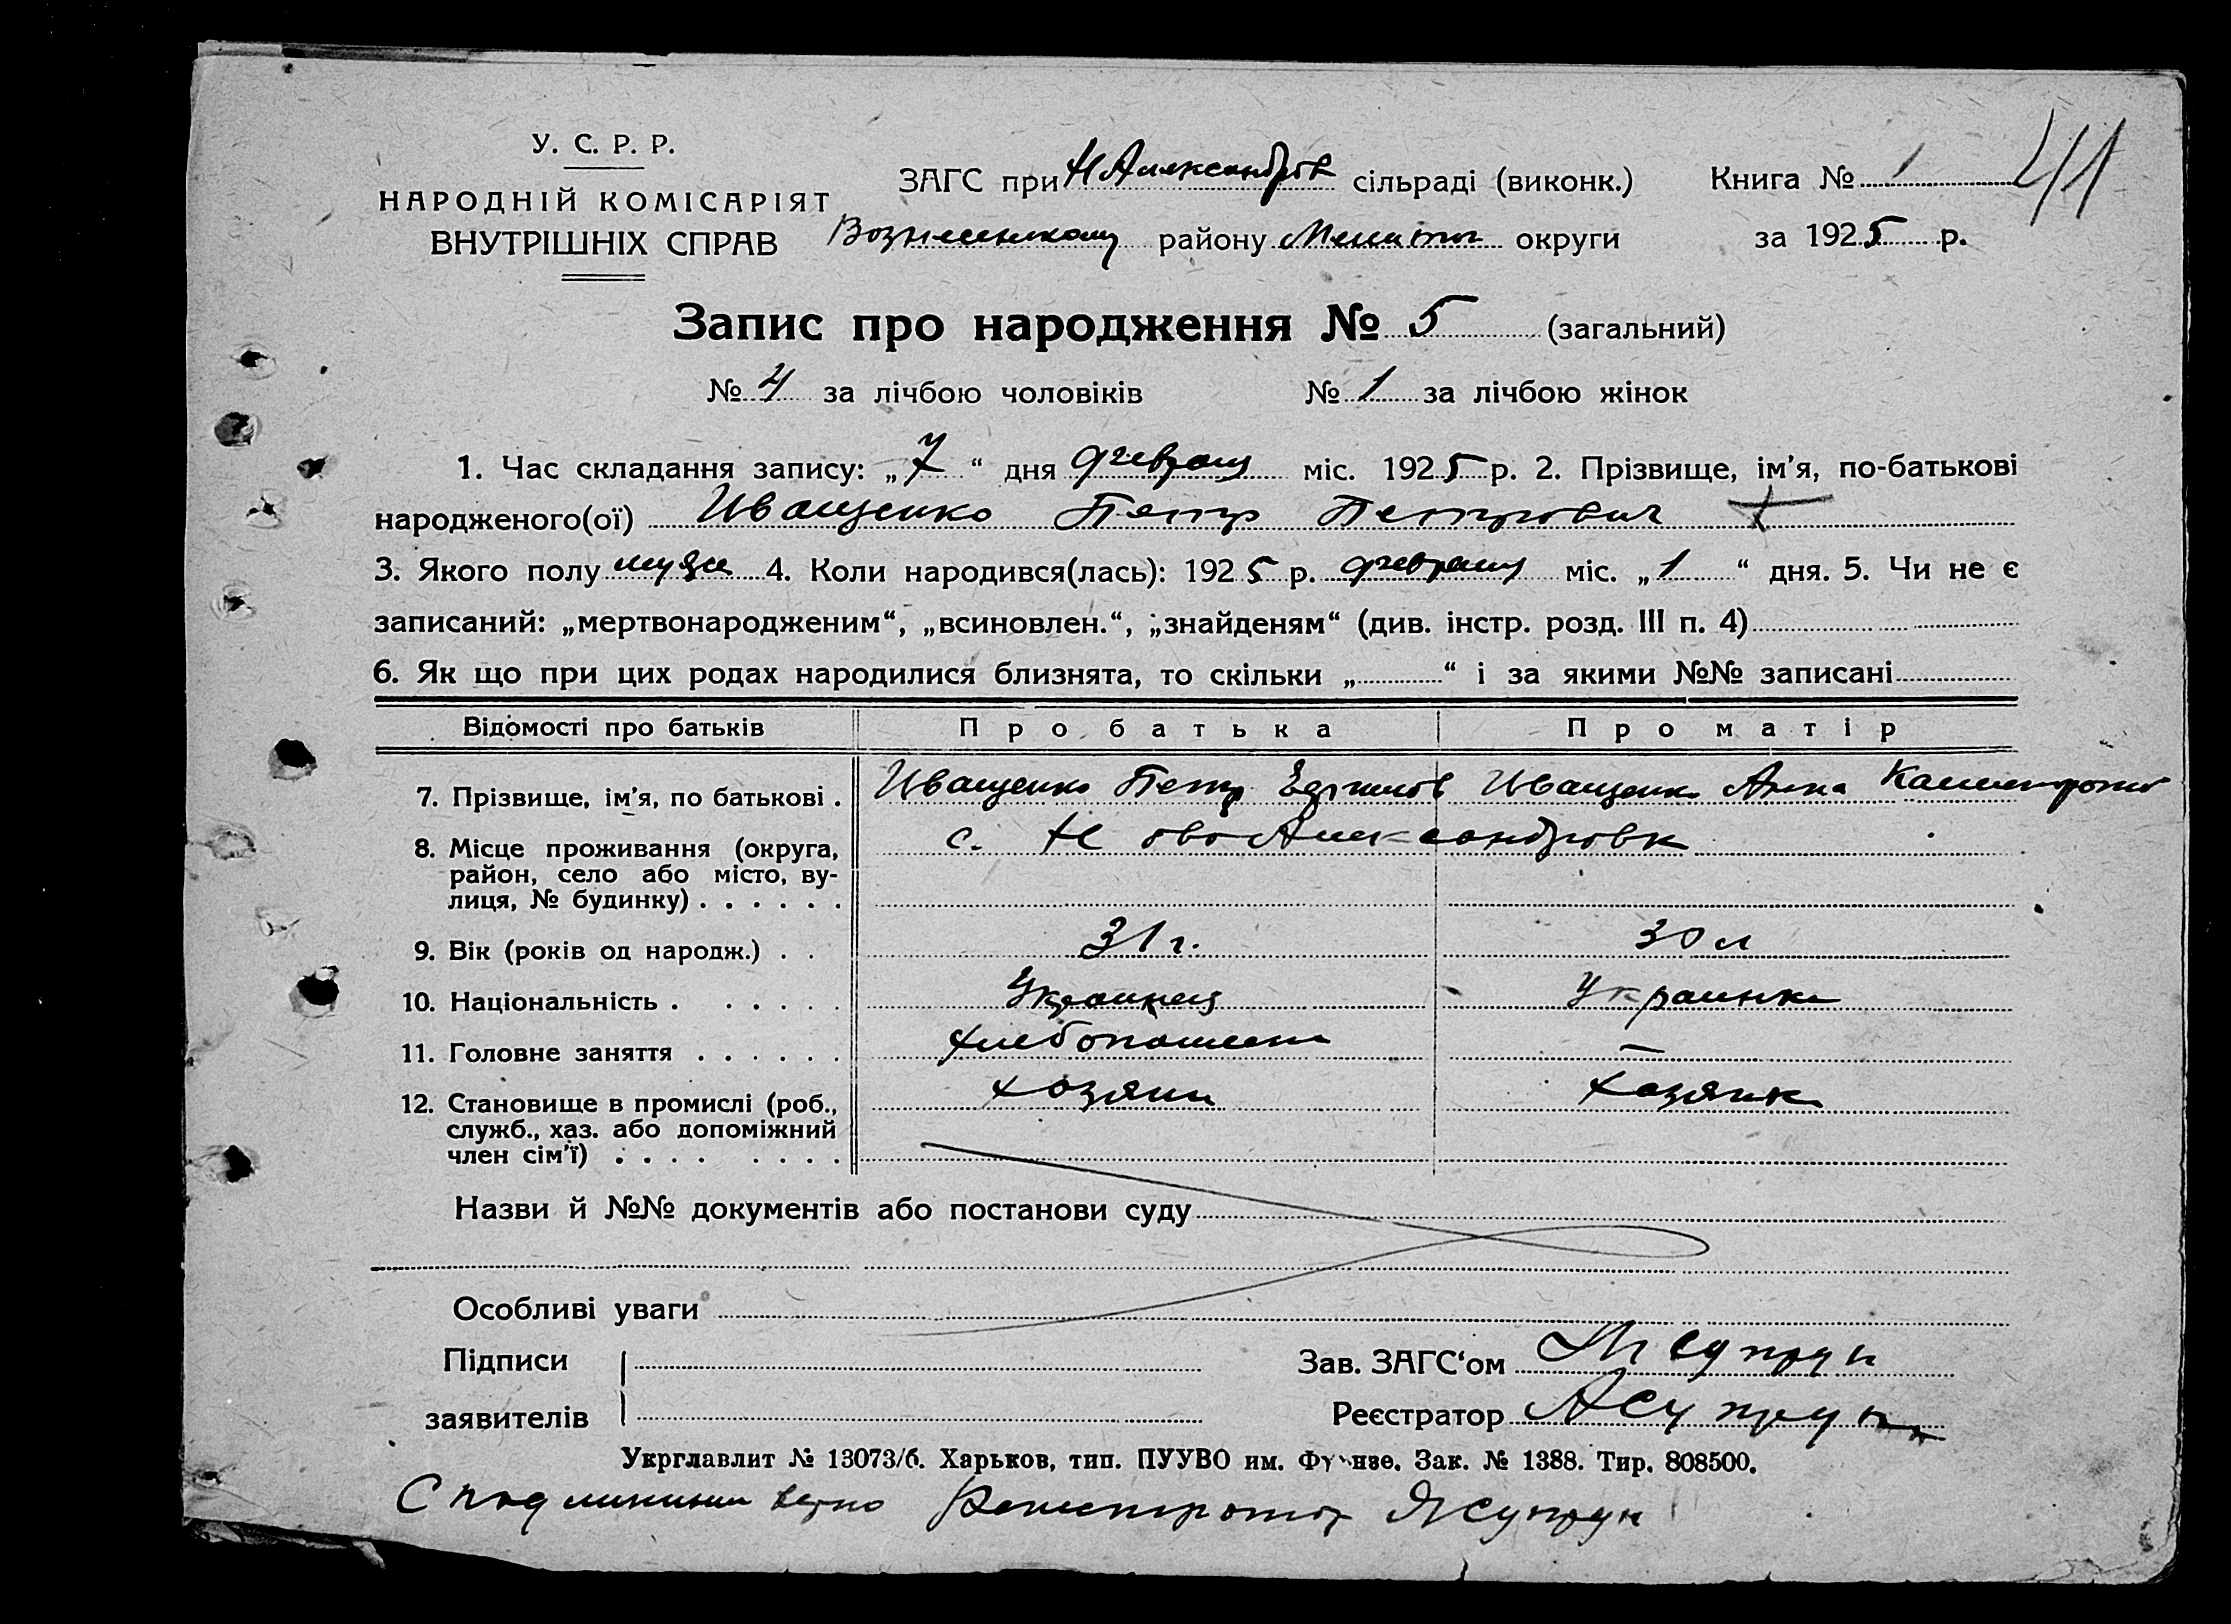 У. С. Р. Р.
НАРОДНІЙ КОМІСАРІЯТ
ВНУТРІШНІХ СПРАВ
ЗАГС при Н Александров сільраді (виконк.)
Вознесенском району Мелитоп округи
Книга № 1
41
за 1925 р.
Запис про народження № 5 (загальний)
№ 4 за лічбою чоловіків № 1 за лічбою жінок
1. Час складання запису: „7“ дня февраля міс. 1925 р. 2. Прізвище, ім'я, по-батькові
народженого(ої) Иващенко Петр Петрович
3. Якого полу муж 4. Коли народився(лась): 1925 р. февраля міс. „1“ дня. 5. Чи не є
записаний: „мертвонародженим“, „всиновлен.“, „знайденям“ (див. інстр. розд. III п. 4)
6. Як що при цих родах народилися близнята, то скільки „ “ і за якими №№ записані
Відомості про батьків Про батька Про матір
7. Прізвище, ім'я, по батькові . Иващенко Петр Иващенко Анна
8. Місце проживання (округа, с. Ново Александровк
район, село або місто, ву-
лиця, № будинку) . . . . . .
9. Вік (років од народж.) . . 31 г. 30 л
10. Національність . . . . . . Украинец Украинка
11. Головне заняття . . . . . . Хлебопашец —
12. Становище в промислі (роб., хозяин хозяйк
служб., хаз. або допоміжний
член сім'ї) . . . . . . . .
Назви й №№ документів або постанови суду
Особливі уваги
Підписи
заявителів
Зав. ЗАГС‘ом Супрун
Реєстратор Супрун
Укрглавлит № 13073/б. Харьков, тип. ПУУВО им. Фрунзе. Зак. № 1388. Тир. 808500.
С подлинным верно Регистратор Супрун